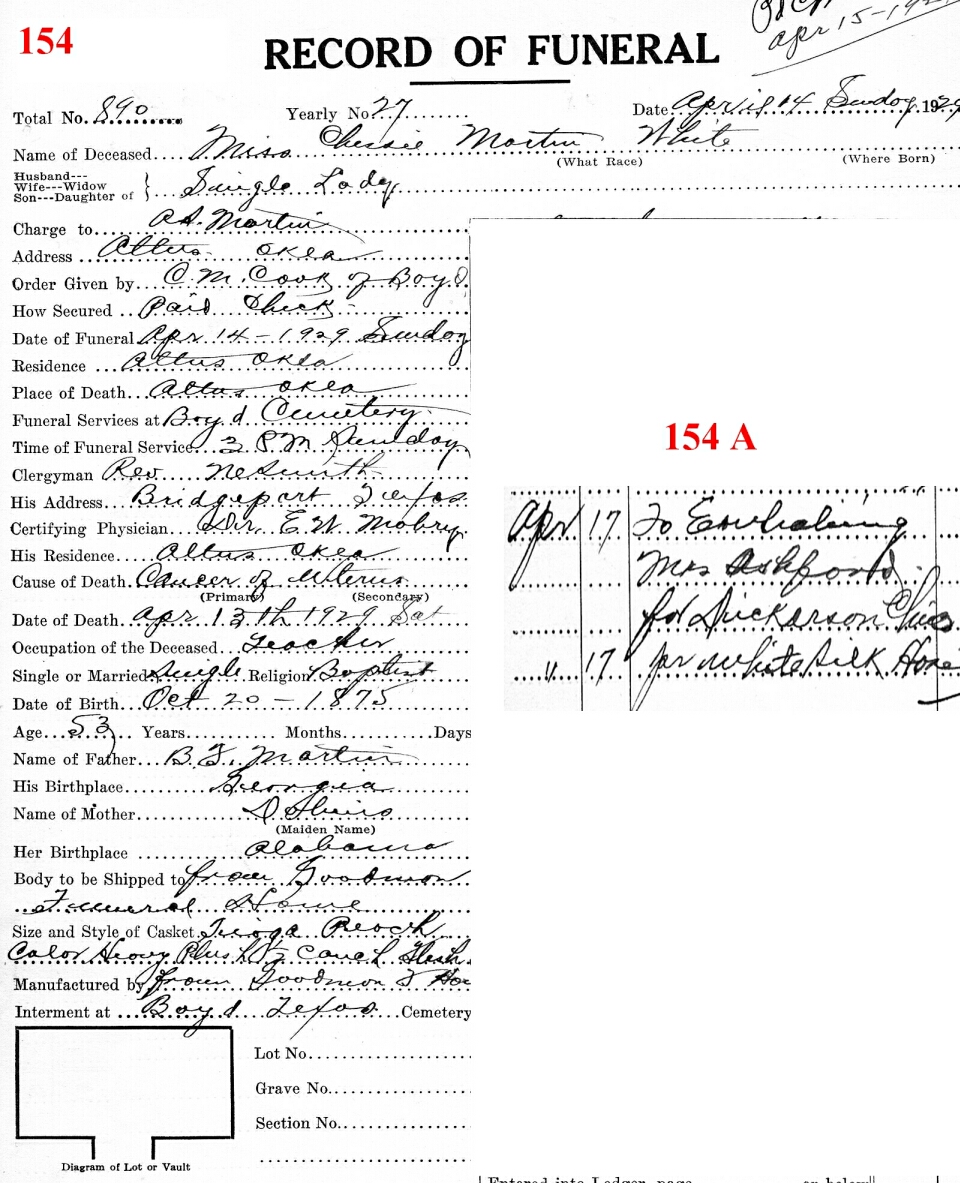 154
apr 15-192
RECORD OF FUNERAL
Total No. 890 Yearly No 27 Date April 14 Sunday 1929
Name of Deceased Miss Chessie Martin White
(What Race) (Where Born)
Husband---
Wife---Widow
Son---Daughter of } Single Lady
Charge to Martin
Address Altus Okla
Order Given by C. M. Cook of Boyd
How Secured Paid Check
Date of Funeral Apr 14-1929 Sunday
Residence Altus Okla
Place of Death Altus Okla
Funeral Services at Boyd Cemetery
Time of Funeral Service 3 P M Sunday
Clergyman Rev. Nesmith
His Address Bridgeport Texas
Certifying Physician Dr. E. W. Mabry
His Residence Altus Okla
Cause of Death Cancer of Uterus
(Primary) (Secondary)
Date of Death Apr 13th 1929 Sat
Occupation of the Deceased Teacher
Single or Married Single Religion Baptist
Date of Birth Oct 20-1875
Age 53 Years Months Days
Name of Father B. F. Martin
His Birthplace Georgia
Name of Mother
(Maiden Name)
Her Birthplace Alabama
Body to be Shipped to from Goodman
Funeral Home
Size and Style of Casket
Color Heavy Plush Flesh
Manufactured by from Goodman F Ho
Interment at Boyd Texas Cemetery
Lot No.
Grave No.
Section No.
Diagram of Lot or Vault
154 A
Apr 17 To Embalming
Mrs Ashford
for Dickerson
" 17 pr White Silk Hose
Entered into Ledger, page or below